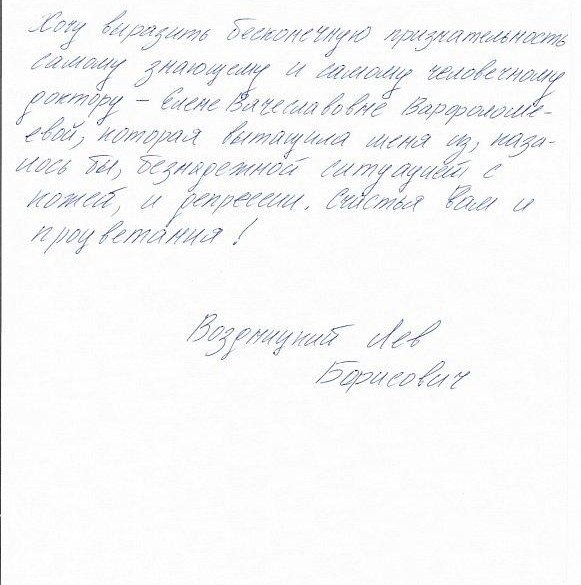 Хочу выразить бесконечную признательность
самому знающему и самому человечному
доктору – Елене Вячеславовне Варфоломе-
евой, которая вытащила меня из, каза-
лось бы, безнадежной ситуацией с
кожей, и депрессии. Счастья Вам и
процветания!
Лев
Борисович